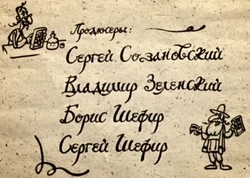 Продюсеры:
Сергей Созановский
Владимир Зеленский
Борис Шефир
Сергей Шефир